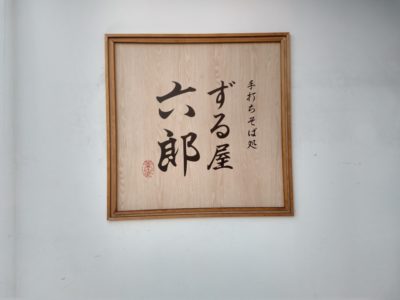 手打ちそば処
ずる屋
六郎